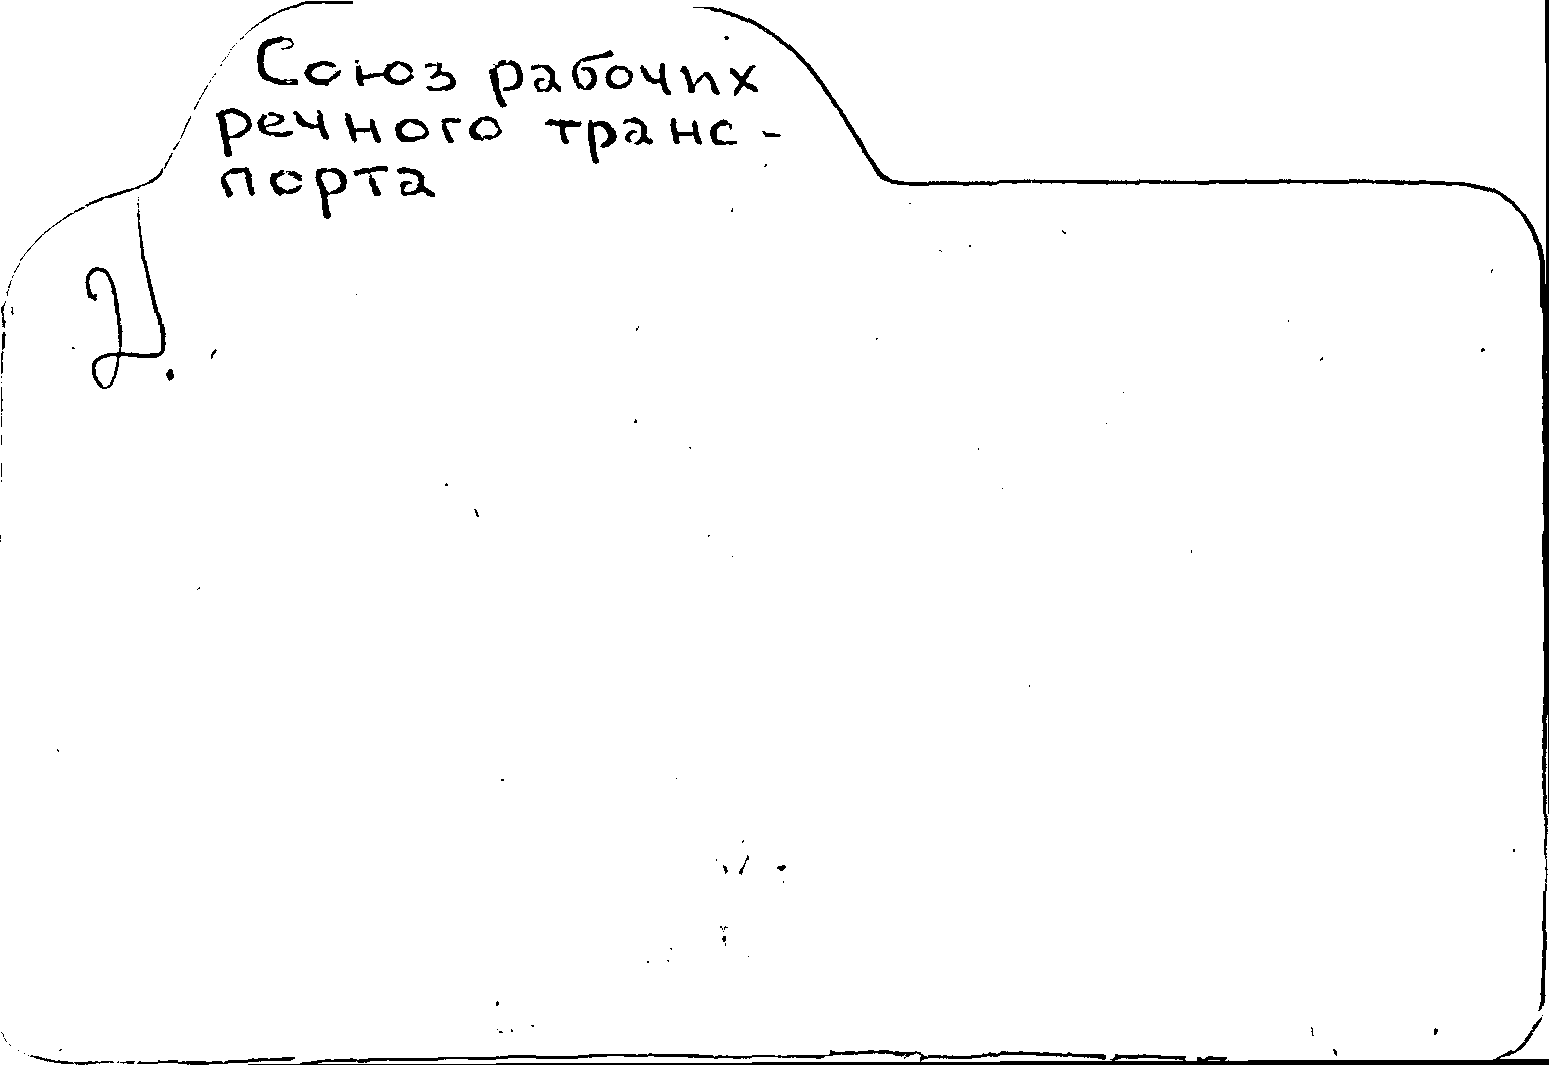 Союз рабочих
речного транс-
порта
2.